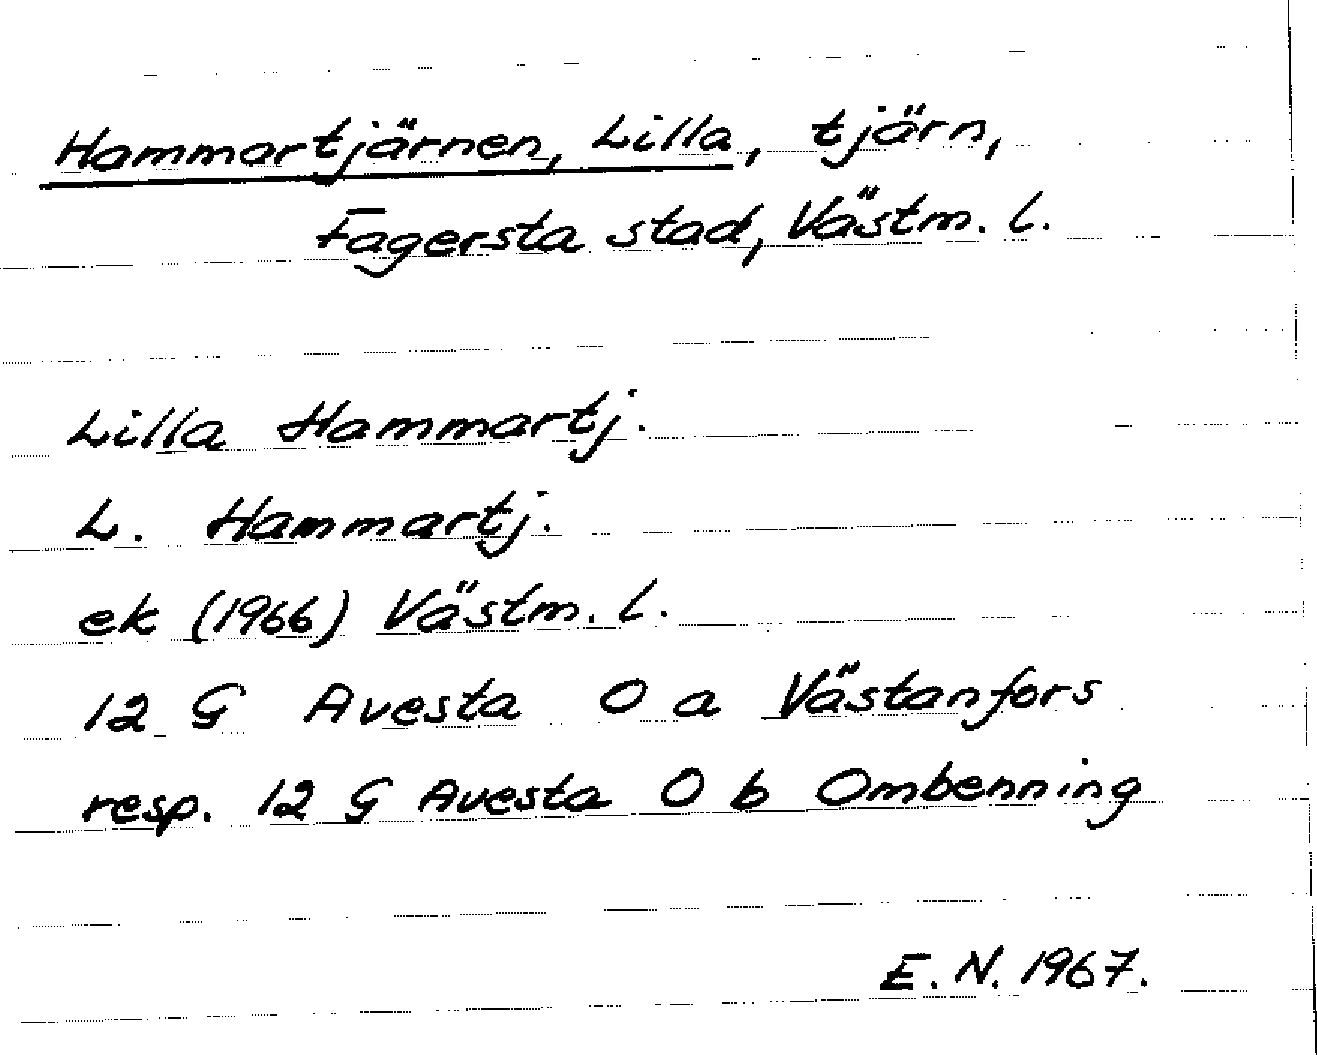 Hammartjärnen, Lilla, tjärn,
Fagersta stad, Västm. l.
Lilla Hammartj.
L. Hammartj.
ek (1966) Västm. l.
12 G Avesta 0 a Västanfors
resp. 12 G Avesta 0 b Ombenning
E. N. 1967.